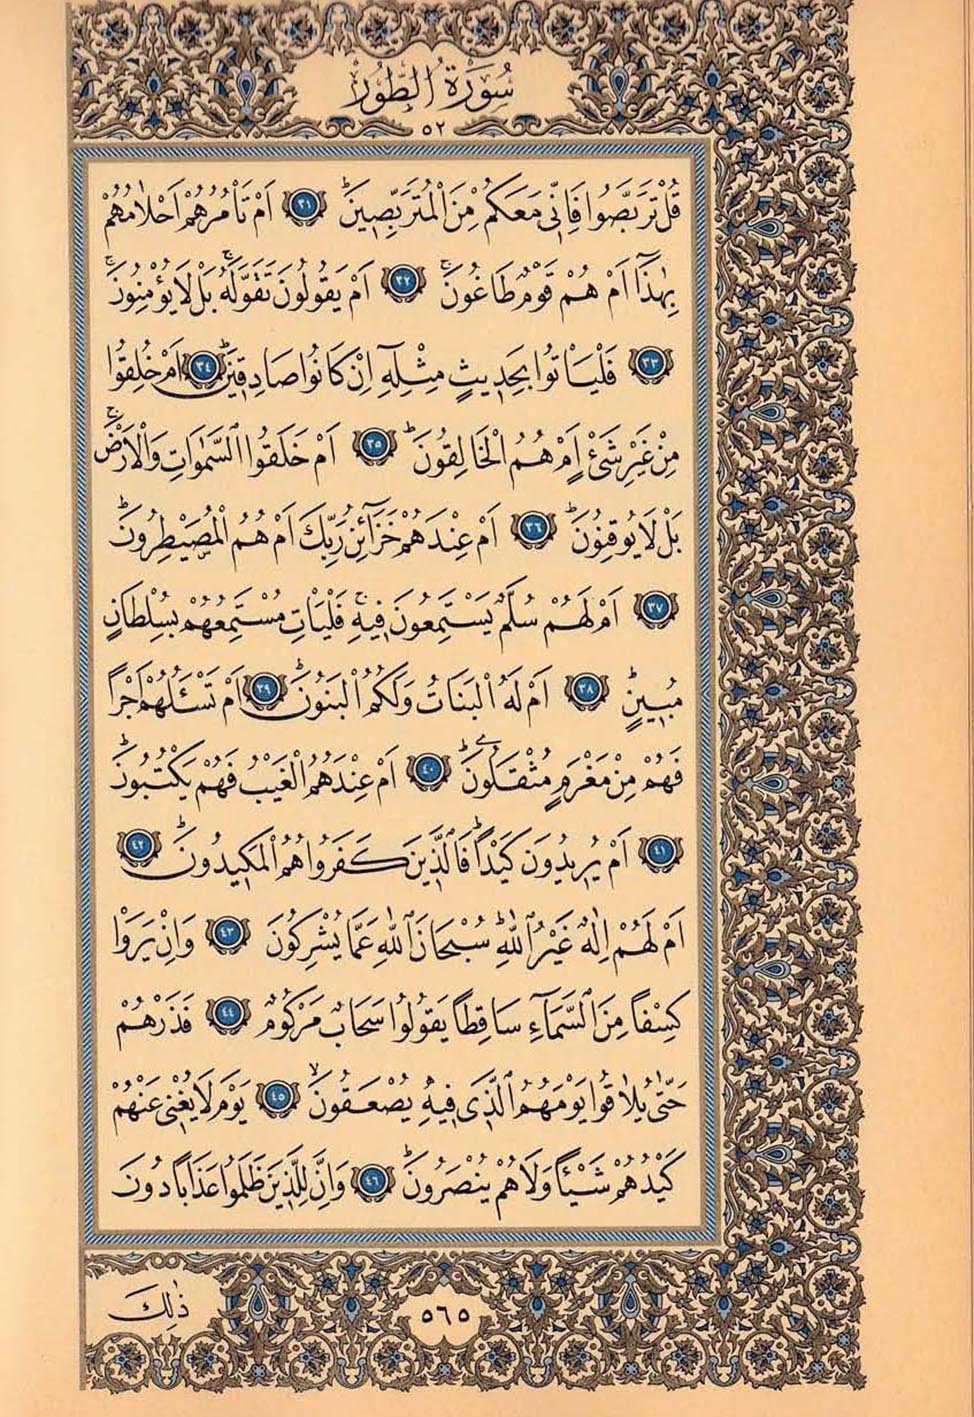 سُورَةُ الطُّورِ
٥٢
قُلْ تَرَبَّصُوا فَاِنّٖى مَعَكُمْ مِنَ الْمُتَرَبِّصٖينَۜ ٣١ اَمْ تَأْمُرُهُمْ اَحْلَامُهُمْ
بِهٰذَٓا اَمْ هُمْ قَوْمٌ طَاغُونَۚ ٣٢ اَمْ يَقُولُونَ تَقَوَّلَهُۚ بَلْ لَا يُؤْمِنُونَۚ
٣٣ فَلْيَأْتُوا بِحَدٖيثٍ مِثْلِهٖٓ اِنْ كَانُوا صَادِقٖينَۜ ٣٤ اَمْ خُلِقُوا
مِنْ غَيْرِ شَىْءٍ اَمْ هُمُ الْخَالِقُونَۜ ٣٥ اَمْ خَلَقُوا السَّمٰوَاتِ وَالْاَرْضَۚ
بَلْ لَا يُوقِنُونَۜ ٣٦ اَمْ عِنْدَهُمْ خَزَٓائِنُ رَبِّكَ اَمْ هُمُ الْمُصَۣيْطِرُونَۜ
٣٧ اَمْ لَهُمْ سُلَّمٌ يَسْتَمِعُونَ فٖيهِۚ فَلْيَأْتِ مُسْتَمِعُهُمْ بِسُلْطَانٍ
مُبٖينٍۜ ٣٨ اَمْ لَهُ الْبَنَاتُ وَلَكُمُ الْبَنُونَۜ ٣٩ اَمْ تَسْـَٔلُهُمْ اَجْرًا
فَهُمْ مِنْ مَغْرَمٍ مُثْقَلُونَۜ ٤٠ اَمْ عِنْدَهُمُ الْغَيْبُ فَهُمْ يَكْتُبُونَۜ
٤١ اَمْ يُرٖيدُونَ كَيْدًاۜ فَالَّذٖينَ كَفَرُوا هُمُ الْمَكٖيدُونَۜ ٤٢
اَمْ لَهُمْ اِلٰهٌ غَيْرُ اللّٰهِۜ سُبْحَانَ اللّٰهِ عَمَّا يُشْرِكُونَ ٤٣ وَاِنْ يَرَوْا
كِسْفًا مِنَ السَّمَٓاءِ سَاقِطًا يَقُولُوا سَحَابٌ مَرْكُومٌ ٤٤ فَذَرْهُمْ
حَتّٰى يُلَاقُوا يَوْمَهُمُ الَّذٖى فٖيهِ يُصْعَقُونَۙ ٤٥ يَوْمَ لَا يُغْنٖى عَنْهُمْ
كَيْدُهُمْ شَيْـًٔا وَلَا هُمْ يُنْصَرُونَۜ ٤٦ وَاِنَّ لِلَّذٖينَ ظَلَمُوا عَذَابًا دُونَ
ذٰلِكَ
٥٦٥